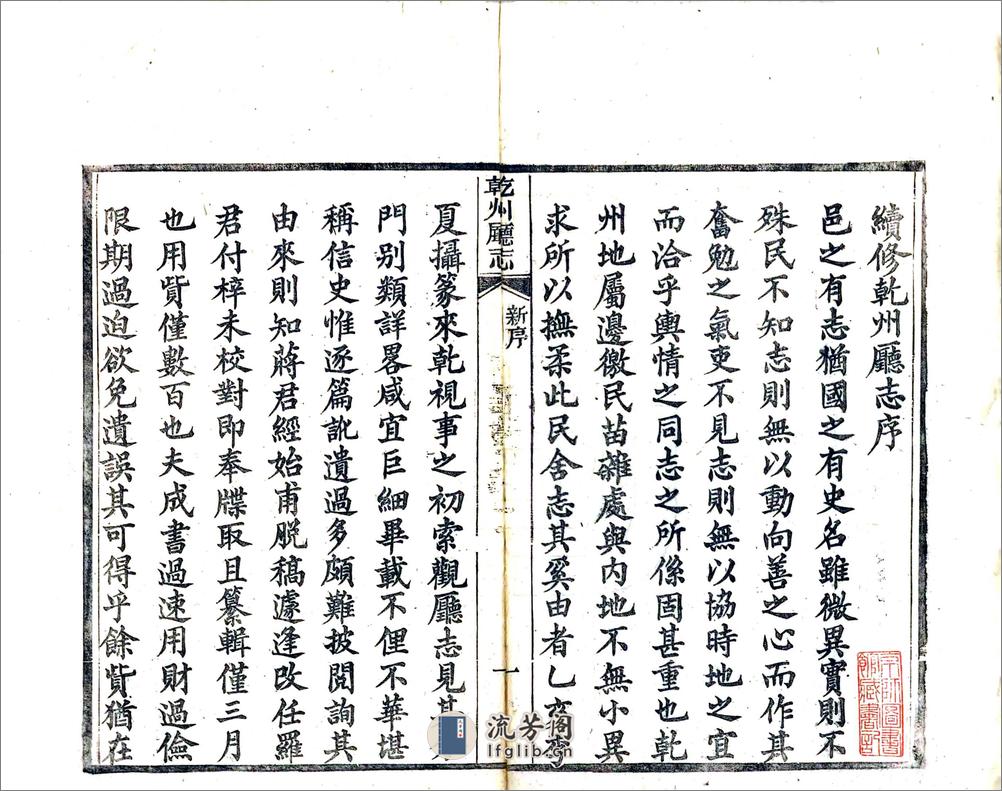 續修乾州廳志序
邑之有志猶國之有史名雖微異實則不
殊民不知志則無以動向善之心而作其
奮勉之氣吏不見志則無以協時地之宜
而洽乎輿情之同志之所係固甚重也乾
州地屬邊徼民苗雜處與内地不無小異
求所以撫柔此民舍志其奚由者乙亥
乾州廳志
新序
一
夏攝篆來乾視事之初索觀廳志見其
門别類詳畧咸宜巨細畢載不俚不華堪
稱信史惟逐篇訛遺過多頗難披閲詢其
由來則知蔣君經始甫脱稿遽逢改任羅
君付梓未校對即奉牒取且纂輯僅三月
也用貲僅數百也夫成書過速用財過儉
限期過迫欲免遺誤其可得乎餘貲猶在
流芳阁
lfglib.com